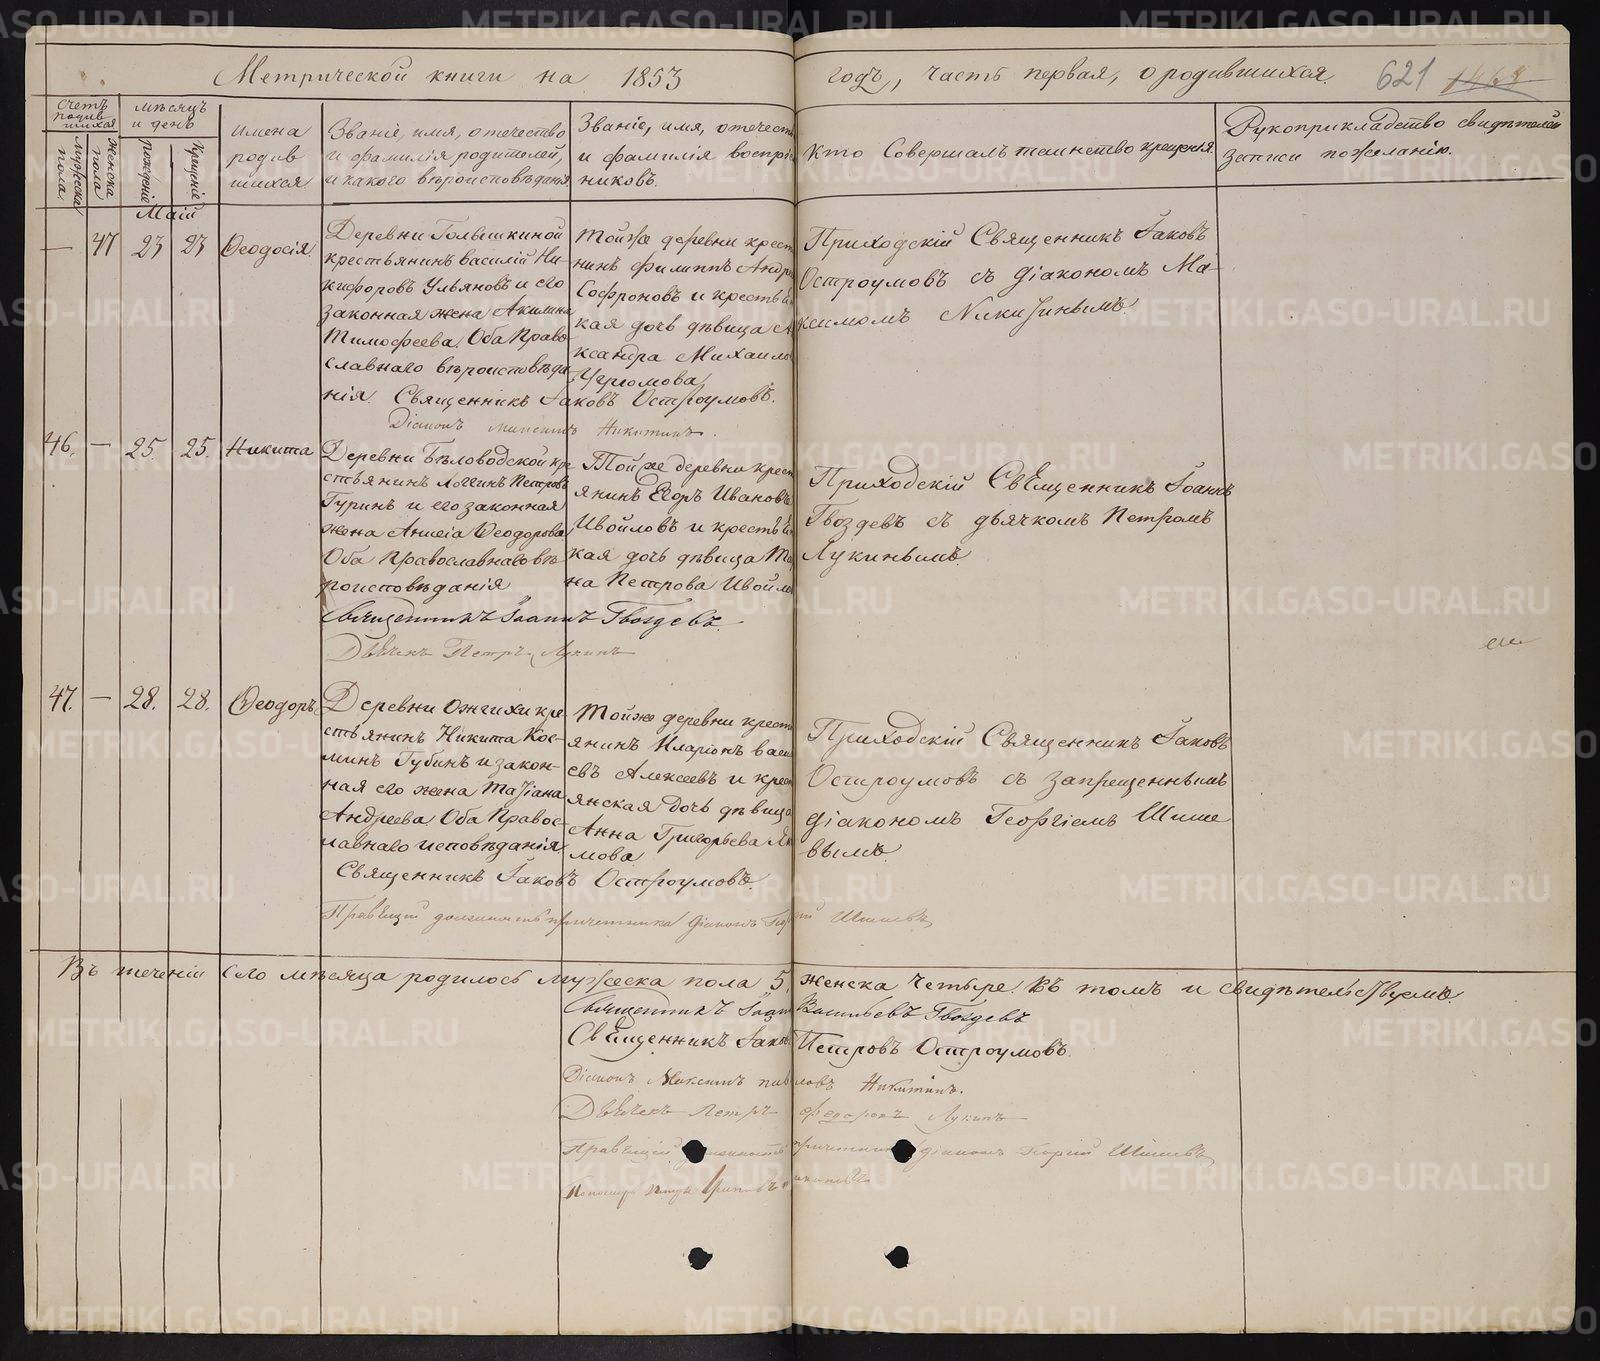 Метрической книги на 1853 годъ, часть первая, о родившихся. 621
Счетъ родившихся
Мужеска пола.
Женска пола
Мѣсяцъ и день
рожденіе
Крещеніе
Имена родившихся
Званіе, имя, отечество
и фамилія родителей,
и какого вѣроисповѣданія
Званіе, имя, отечест
и фамилія воспрі
никовъ.
Кто Совершалъ таинство крещенія
Рукоприкладство свидѣтелей
записи по желанію.
Маій
— 47 23 23 Ѳеодосія
Деревни Голышкиной
крестьянинъ Василій Ни-
кифоровъ Ульяновъ и его
законная жена Акилина
Тимофеева. Оба Право-
славнаго вѣроисповѣда-
нія. Священникъ Іаковъ Остроумовъ.
Діаконъ Максимъ Никитинъ.
Тойже деревни крест
нинъ Филиппъ Андре
Софроновъ и крестья
кая дочь дѣвица Але
ксандра Михаило
Угрюмова
Приходскій Священникъ Іаковъ
Остроумовъ съ діакономъ Ма-
ксимомъ Никитинымъ.
46. — 25. 25. Никита
Деревни Бѣловодской кре
стьянинъ Логгинъ Петровъ
Гуринъ и его законная
жена Анисія Ѳеодорова
Оба Православнаго вѣ-
роисповѣданія
Священникъ Іоаннъ Гвоздевъ.
Дьячекъ Петръ Лукинъ
Той же деревни крест
янинъ Егоръ Ивановъ
Ивойловъ и крестья
кая дочь дѣвица
на Петрова Ивойло
Приходскій Священникъ Іоаннъ
Гвоздевъ съ дьячкомъ Петромъ
Лукинымъ.
47. — 28. 28. Ѳеодоръ
Деревни Ожгихи кре-
стьянинъ Никита Кос-
минъ Губинъ и закон-
ная его жена Татіана
Андреева Оба Правос-
лавнаго исповѣданія
Священникъ Іаковъ Остроумовъ.
Правящій должность причетника діаконъ Георгій Шишевъ
Тойже деревни крест
янинъ Иларіонъ Васи
евъ Алексеевъ и крест
янская дочь дѣвица
Анна Григорьева
мова
Приходскій Священникъ Іаковъ
Остроумовъ съ запрещеннымъ
діакономъ Георгіемъ Шише
вымъ.
Въ теченіи сего мѣсяца родилось мужеска пола 5, женска четыре. Въ томъ и свидѣтельствуемъ.
Священникъ Іоаннъ Васильевъ Гвоздевъ
Священникъ Іаковъ Петровъ Остроумовъ.
Діаконъ Максимъ Павловъ Никитинъ.
Дьячекъ Петръ Федоровъ Лукинъ
Правящій должность причетника діаконъ Георгій Шишевъ
METRIKI.GASO-URAL.RU